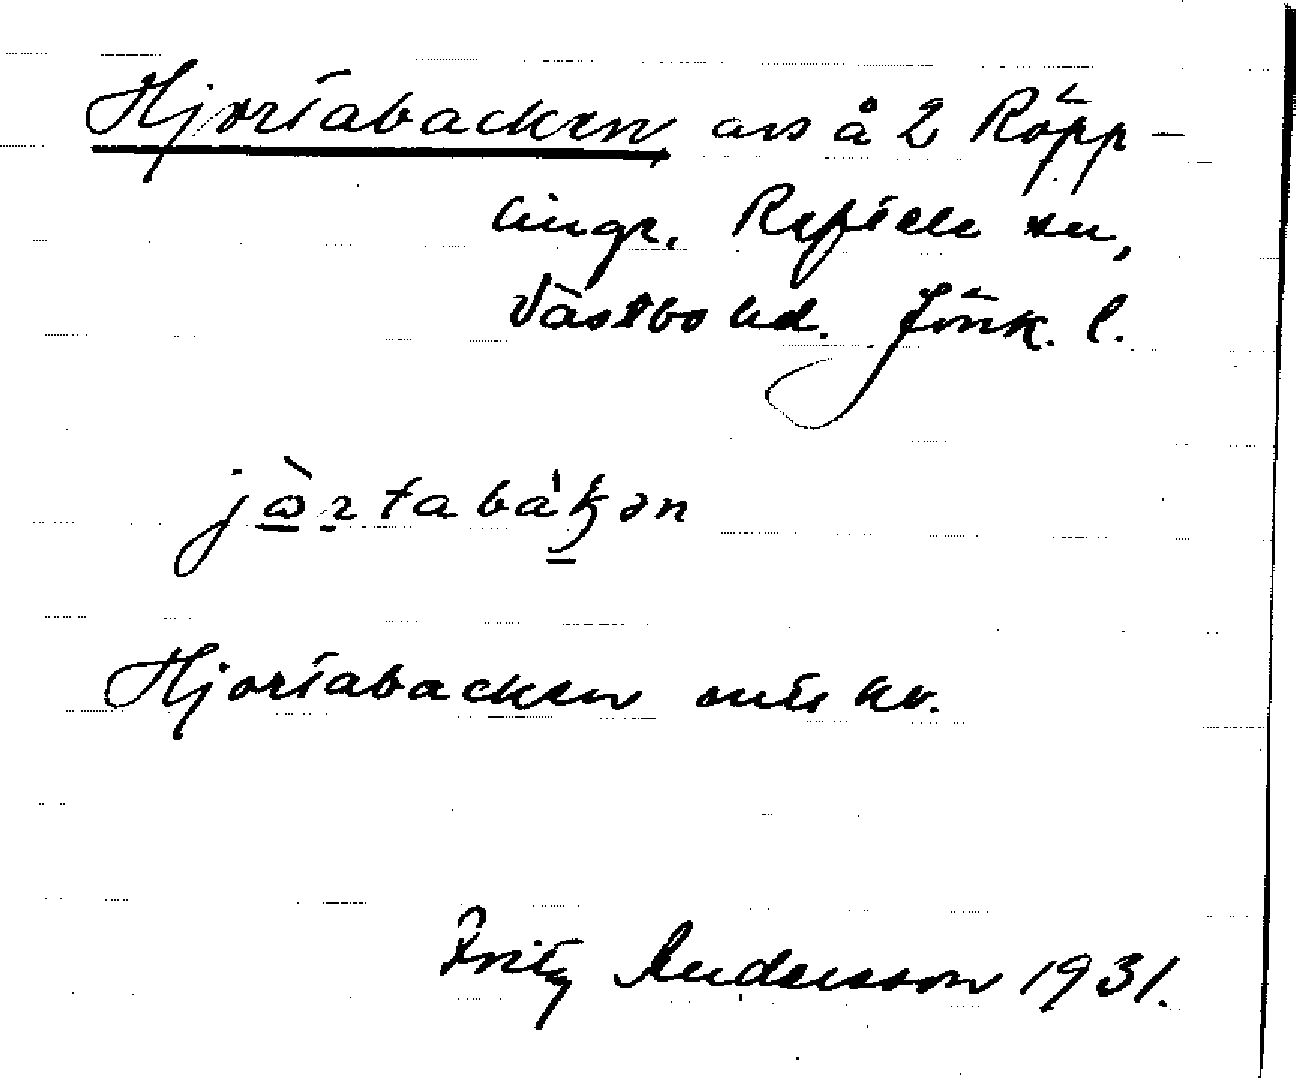 Hjortabacken avs å 2 Röpp-
lingr. Reftele sn,
Västbo hd. Jönk. l.
jò̱ṟtabáḵən
Hjortabacken mts kv.
Fritz Andersson 1931.